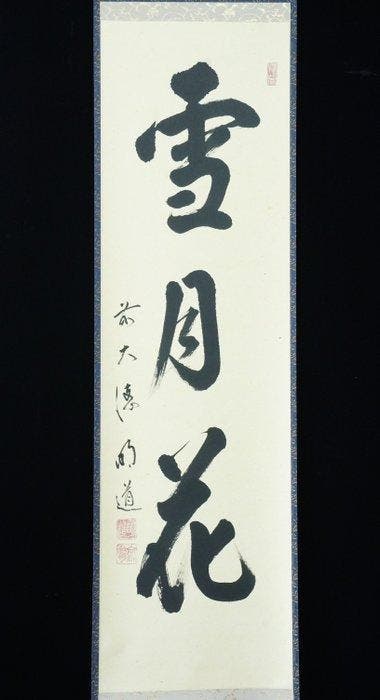 雪月花
前大徳明道